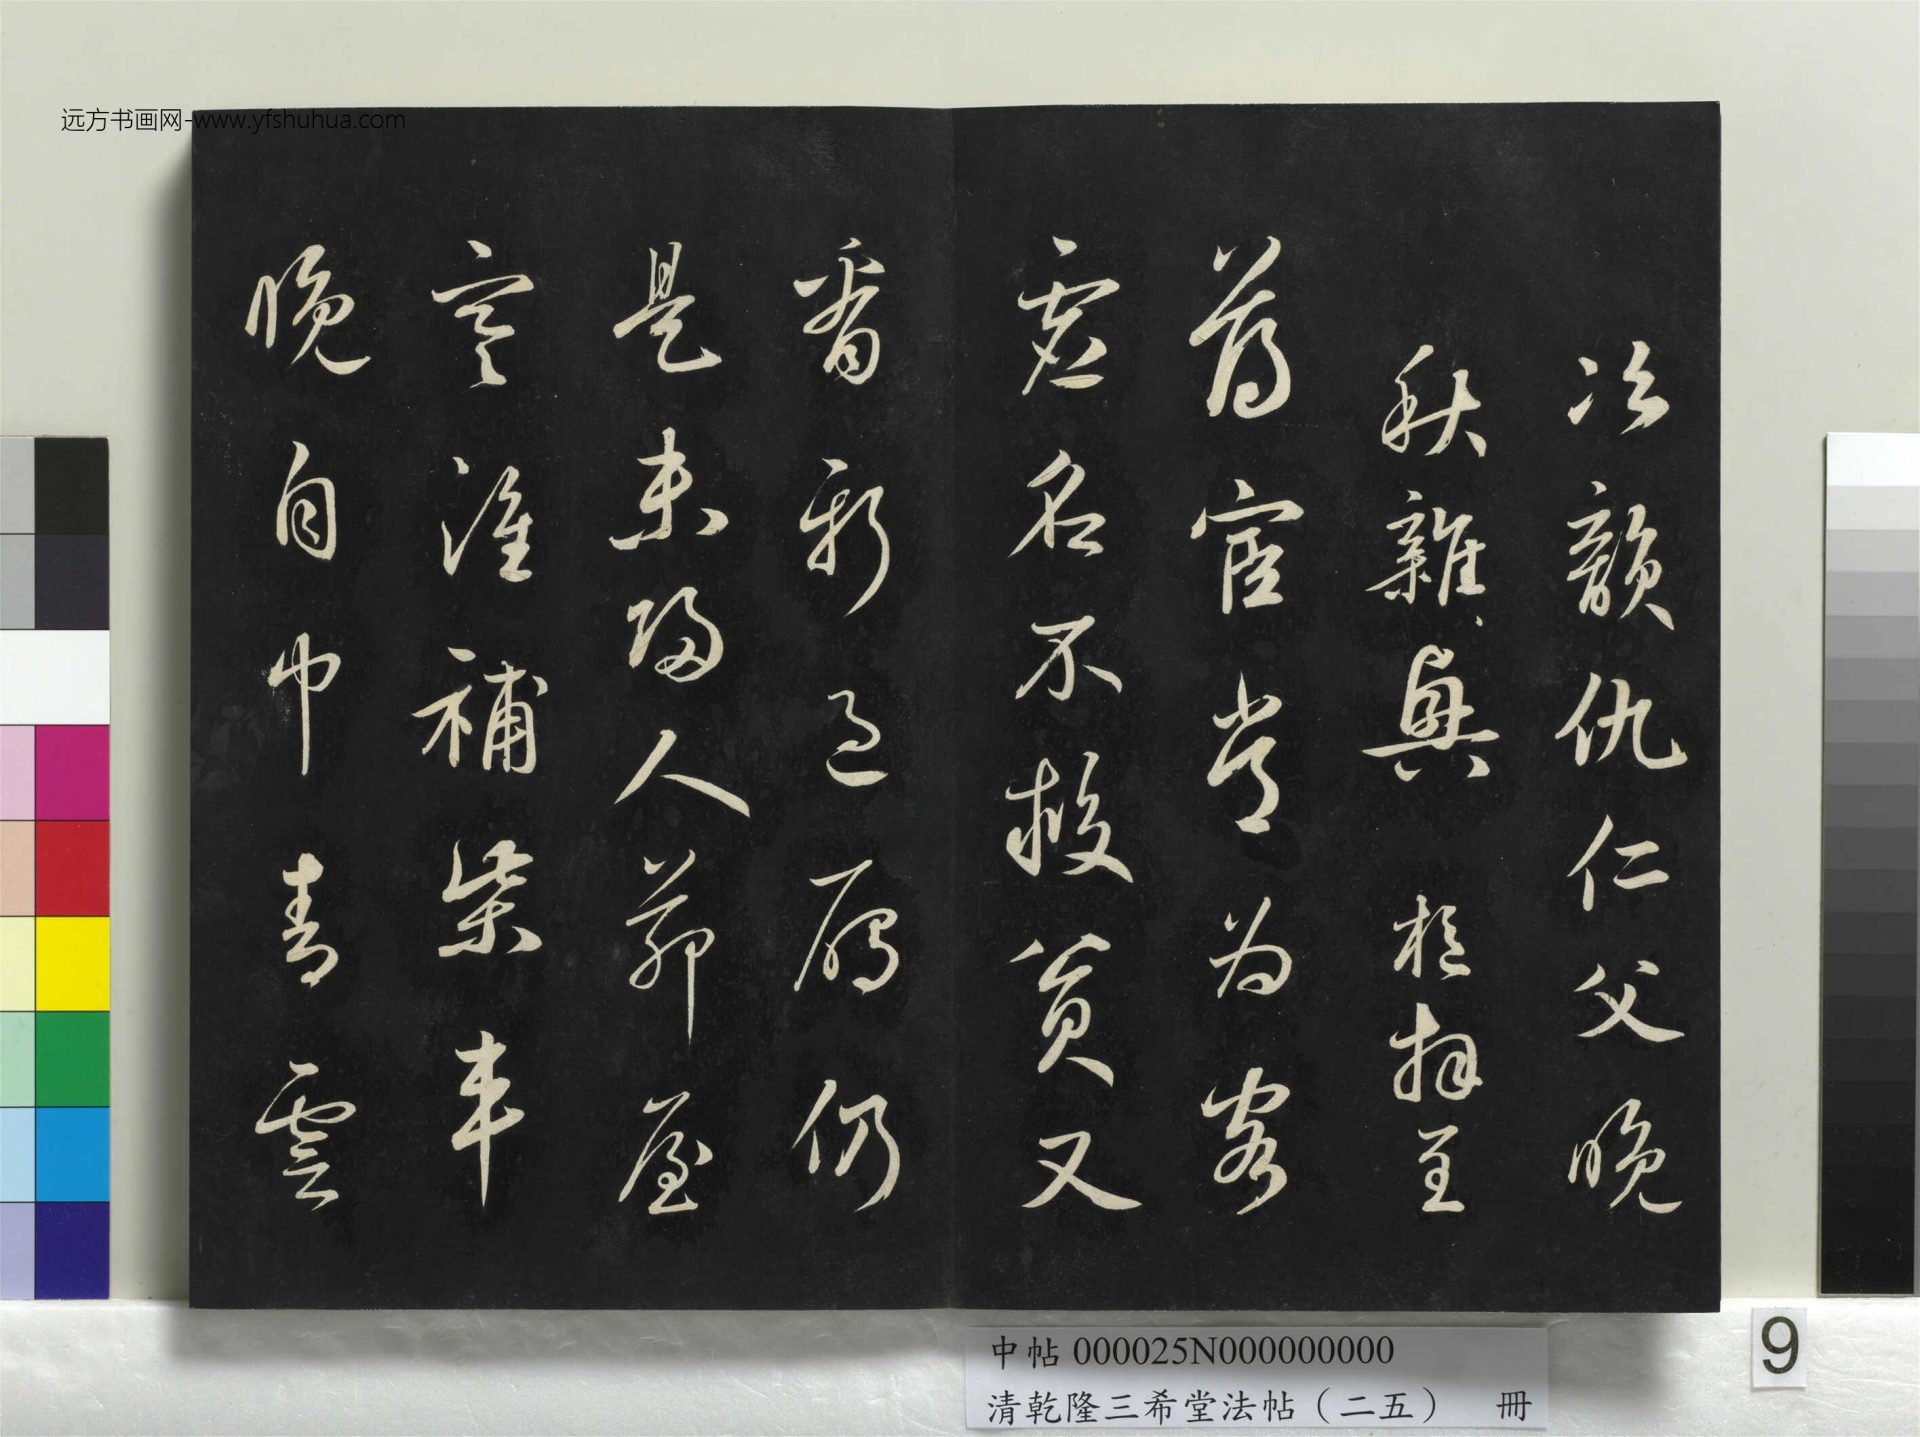 远方书画网-www.yfshuhua.com
次韻仇仁父晚
秋雜興 樞拜呈
薄宦常為客
虛名不救貧又
看新過鴈仍
是未歸人茆屋
寒誰補柴車
晚自巾青雲
中帖 000025N000000000
清乾隆三希堂法帖（二五） 冊
9